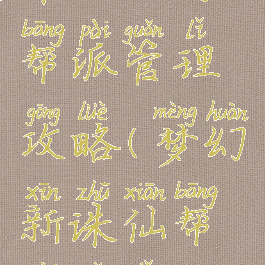 bāng pài guǎn lǐ
帮派管理
gōng lüè mèng huàn
攻略(梦幻
xīn zhū xiān bāng
新诛仙帮